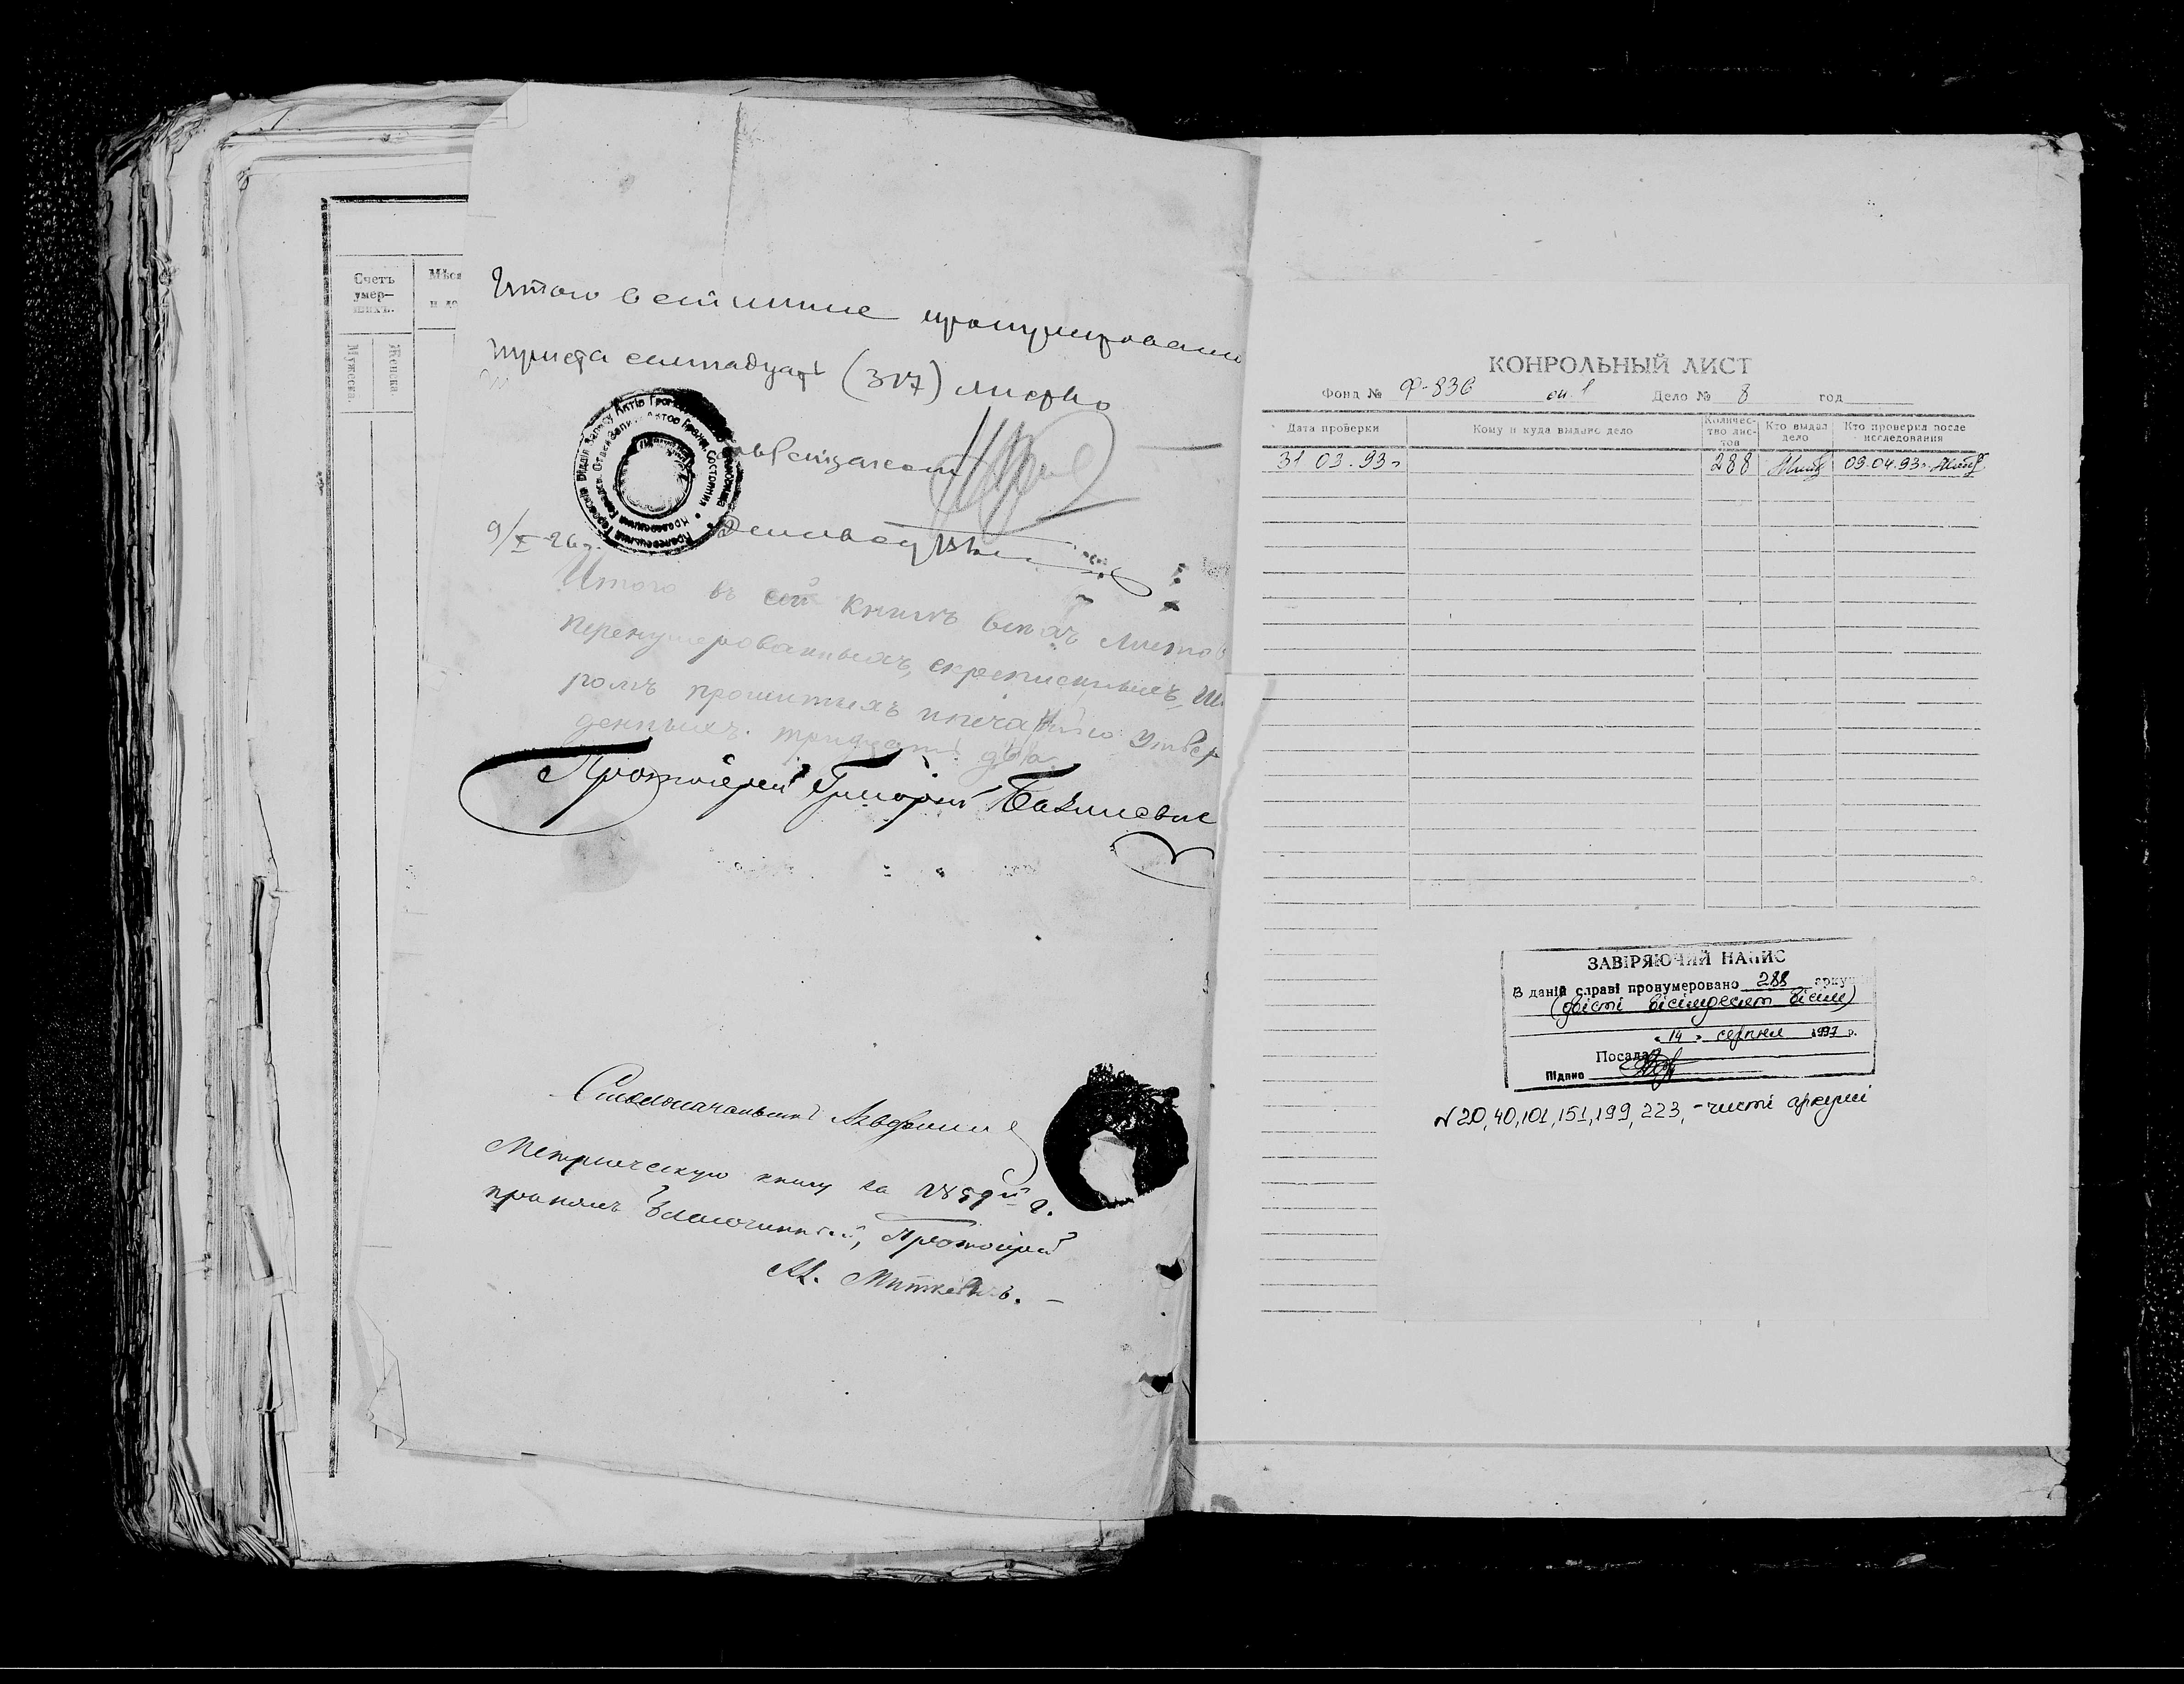 Счетъ
умер-
шихъ.
Мужеска.
Женска.
Мѣся
и
Итого в сей книге пронумеровано
триста семнадцать (317) листов
9/X-26г.
Итого въ сей книгѣ всѣхъ листов
перенумерованныхъ, скрепленныхъ, шну
ромъ прошитыхъ и печатью утвер
денныхъ. тридцать два
Протоіерей Григорій
Столоначальникъ
Метрическую книгу за 1859й г.
принялъ Благочинный, Протоіерей
М. Миткевичъ.
КОНРОЛЬНЫЙ ЛИСТ
Фонд № Ф-836 оп. 1 Дело № 8 год
Дата проверки Кому и куда выдано дело Количес-тво лис-тов Кто выдал дело Кто проверил после исследования
31 03.93г 288 09.04.93г.
ЗАВІРЯЮЧИЙ НАПИС
В даній справі пронумеровано 288 арку
(двісті вісімдесят вісім)
"14" серпня 1997 р.
Посада
Підпис
№20, 40, 101, 151, 199, 223, - чисті аркуші